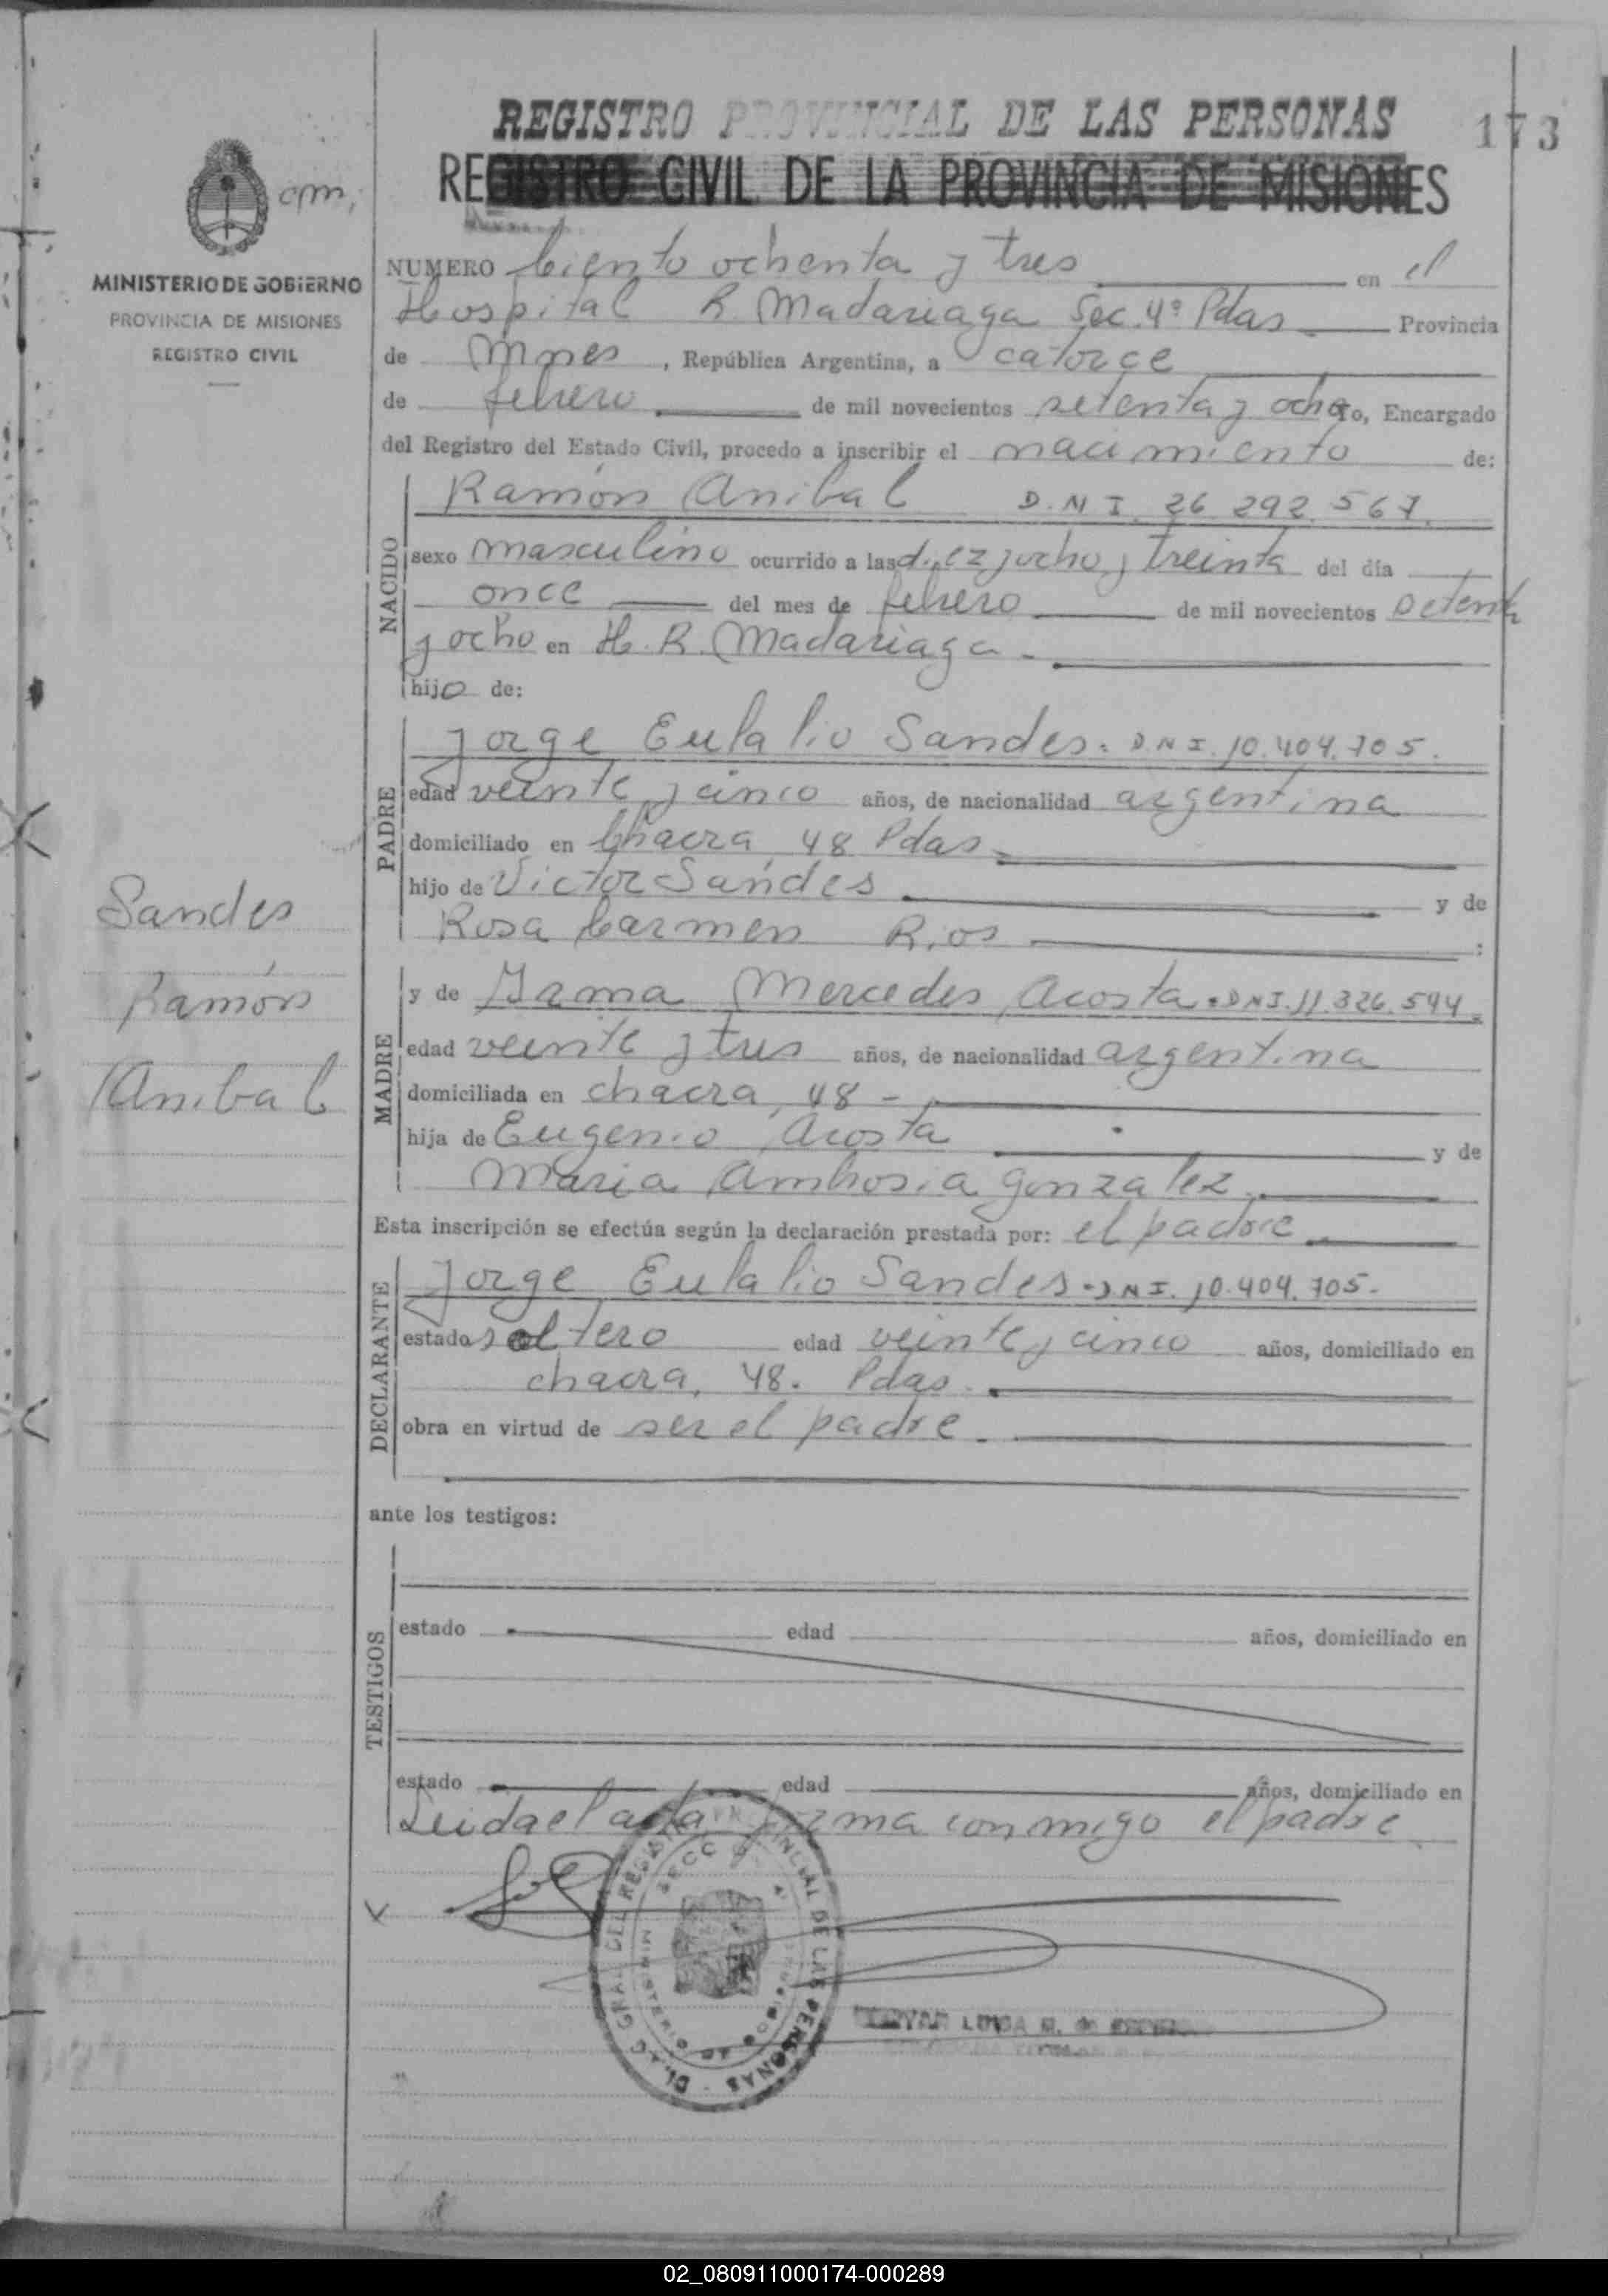 REGISTRO PROVINCIAL DE LAS PERSONAS
173
REGISTRO CIVIL DE LA PROVINCIA DE MISIONES
cpm,
MINISTERIO DE GOBIERNO
PROVINCIA DE MISIONES
REGISTRO CIVIL
NUMERO Ciento ochenta y tres en el
Hospital R. Madariaga Sec. 4ª Pdas Provincia
de Mnes, República Argentina, a catorce
de febrero de mil novecientos setenta y ocho, Encargado
del Registro del Estado Civil, procedo a inscribir el nacimiento de:
NACIDO
Ramón Anibal D.N.I. 26.292.567.
sexo masculino ocurrido a las diez y ocho y treinta del día
once del mes de febrero de mil novecientos setenta
y ocho en H. R. Madariaga.
hijo de:
PADRE
Jorge Eulalio Sandes. D.N.I. 10.404.705.
edad veinte y cinco años, de nacionalidad argentina
domiciliado en Chacra, 48 Pdas
hijo de Victor Sandes y de
Rosa Carmen Rios :
MADRE
y de Irma Mercedes Acosta. DNI. 11.326.544
edad veinte y tres años, de nacionalidad argentina
domiciliada en chacra, 48 -
hija de Eugenio Acosta y de
Maria Ambrosia Gonzalez
Esta inscripción se efectúa según la declaración prestada por: el padre
DECLARANTE
Jorge Eulalio Sandes. DNI. 10.404.705.
estado soltero edad veinte y cinco años, domiciliado en
chacra, 48. Pdas.
obra en virtud de ser el padre.
Sandes
Ramón
Anibal
ante los testigos:
TESTIGOS
estado edad años, domiciliado en
estado edad años, domiciliado en
Leida el acta firma conmigo el padre
DIREC. GRAL. DEL REGISTRO PROVINCIAL DE LAS PERSONAS
MINISTERIO DE GOBIERNO
02_080911000174-000289